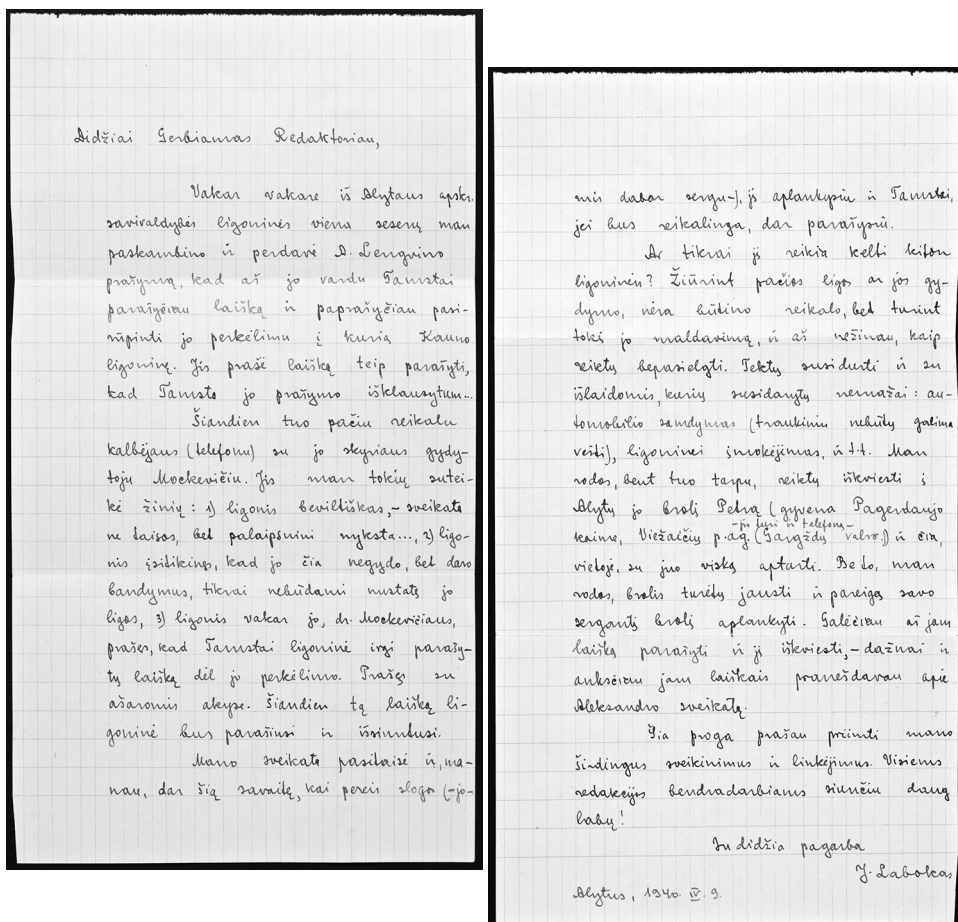 Didžiai Gerbiamas Redaktoriau,
Vakar vakare iš Alytaus apskr.
savivaldybės ligoninės viena seserų man
paskambino ir perdavė A. Lengvino
prašymą, kad aš jo vardu Tamstai
parašyčiau laišką ir paprašyčiau pasi-
rūpinti jo perkėlimu į kurią Kauno
ligoninę. Jis prašė laišką teip parašyti,
kad Tamsta jo prašymo išklausytum...
Šiandien tuo pačiu reikalu
kalbėjaus (telefonu) su jo skyriaus gydy-
toju Mockevičiu. Jis man tokių sutei-
kė žinių: 1) ligonis beviltiškas,- sveikata
ne taisos, bet palaipsniui nyksta..., 2) ligo-
nis įsitikinęs, kad jo čia negydo, bet daro
bandymus, tikrai nebūdami nustatę jo
ligos, 3) ligonis vakar jo, dr. Mockevičiaus,
prašęs, kad Tamstai ligoninė irgi parašy-
tų laišką dėl jo perkėlimo. Prašęs su
ašaromis akyse. Šiandien tą laišką li-
goninė bus parašiusi ir išsiuntusi.
Mano sveikata pasitaisė ir, ma-
nau, dar šią savaitę, kai pereis sloga (-jo-
mis dabar sergu-), jį aplankysiu ir Tamstai,
jei bus reikalinga, dar parašysiu.
Ar tikrai jį reikia kelti kiton
ligoninėn? Žiūrint pačios ligos ar jos gy-
dymo, nėra būtino reikalo, bet turint
tokį jo maldavimą, ir aš nežinau, kaip
reiktų bepasielgti. Tektų susidurti ir su
išlaidomis, kurių susidarytų nemažai: au-
tomobilio samdymas (traukiniu nebūtų galima
vežti), ligoninei įmokėjimas, ir t.t. Man
rodos, bent tuo tarpu, reiktų iškviesti į
Alytų jo brolį Petrą (gyvena Pagerdaujo
-jis turi ir telefoną-
kaime, Viežaičių p.ag. (Gargždų valsč.)) ir čia,
vietoje, su juo viską aptarti. Be to, man
rodos, brolis turėtų jausti ir pareigą savo
sergantį brolį aplankyti. Galėčiau aš jam
laišką parašyti ir jį iškviesti,- dažnai ir
anksčiau jam laiškais pranešdavau apie
Aleksandro sveikatą.
Šia proga prašau priimti mano
širdingus sveikinimus ir linkėjimus. Visiems
redakcijos bendradarbiams siunčiu daug
labų!
Su didžia pagarba
J. Labokas
Alytus, 1940. IV. 9.